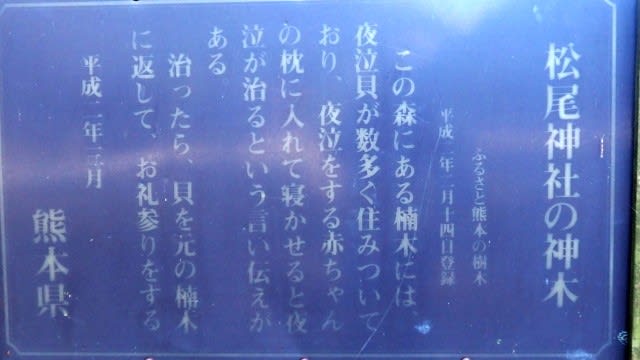 松尾神社の神木
ふるさと熊本の樹木
平成二年二月十四日登録
この森にある楠木には、
夜泣貝が数多く住みついて
おり、夜泣をする赤ちゃん
の枕に入れて寝かせると夜
泣が治るという言い伝えが
ある
治ったら、貝を元の楠木
に返して、お礼参りをする
平成二年三月
熊本県